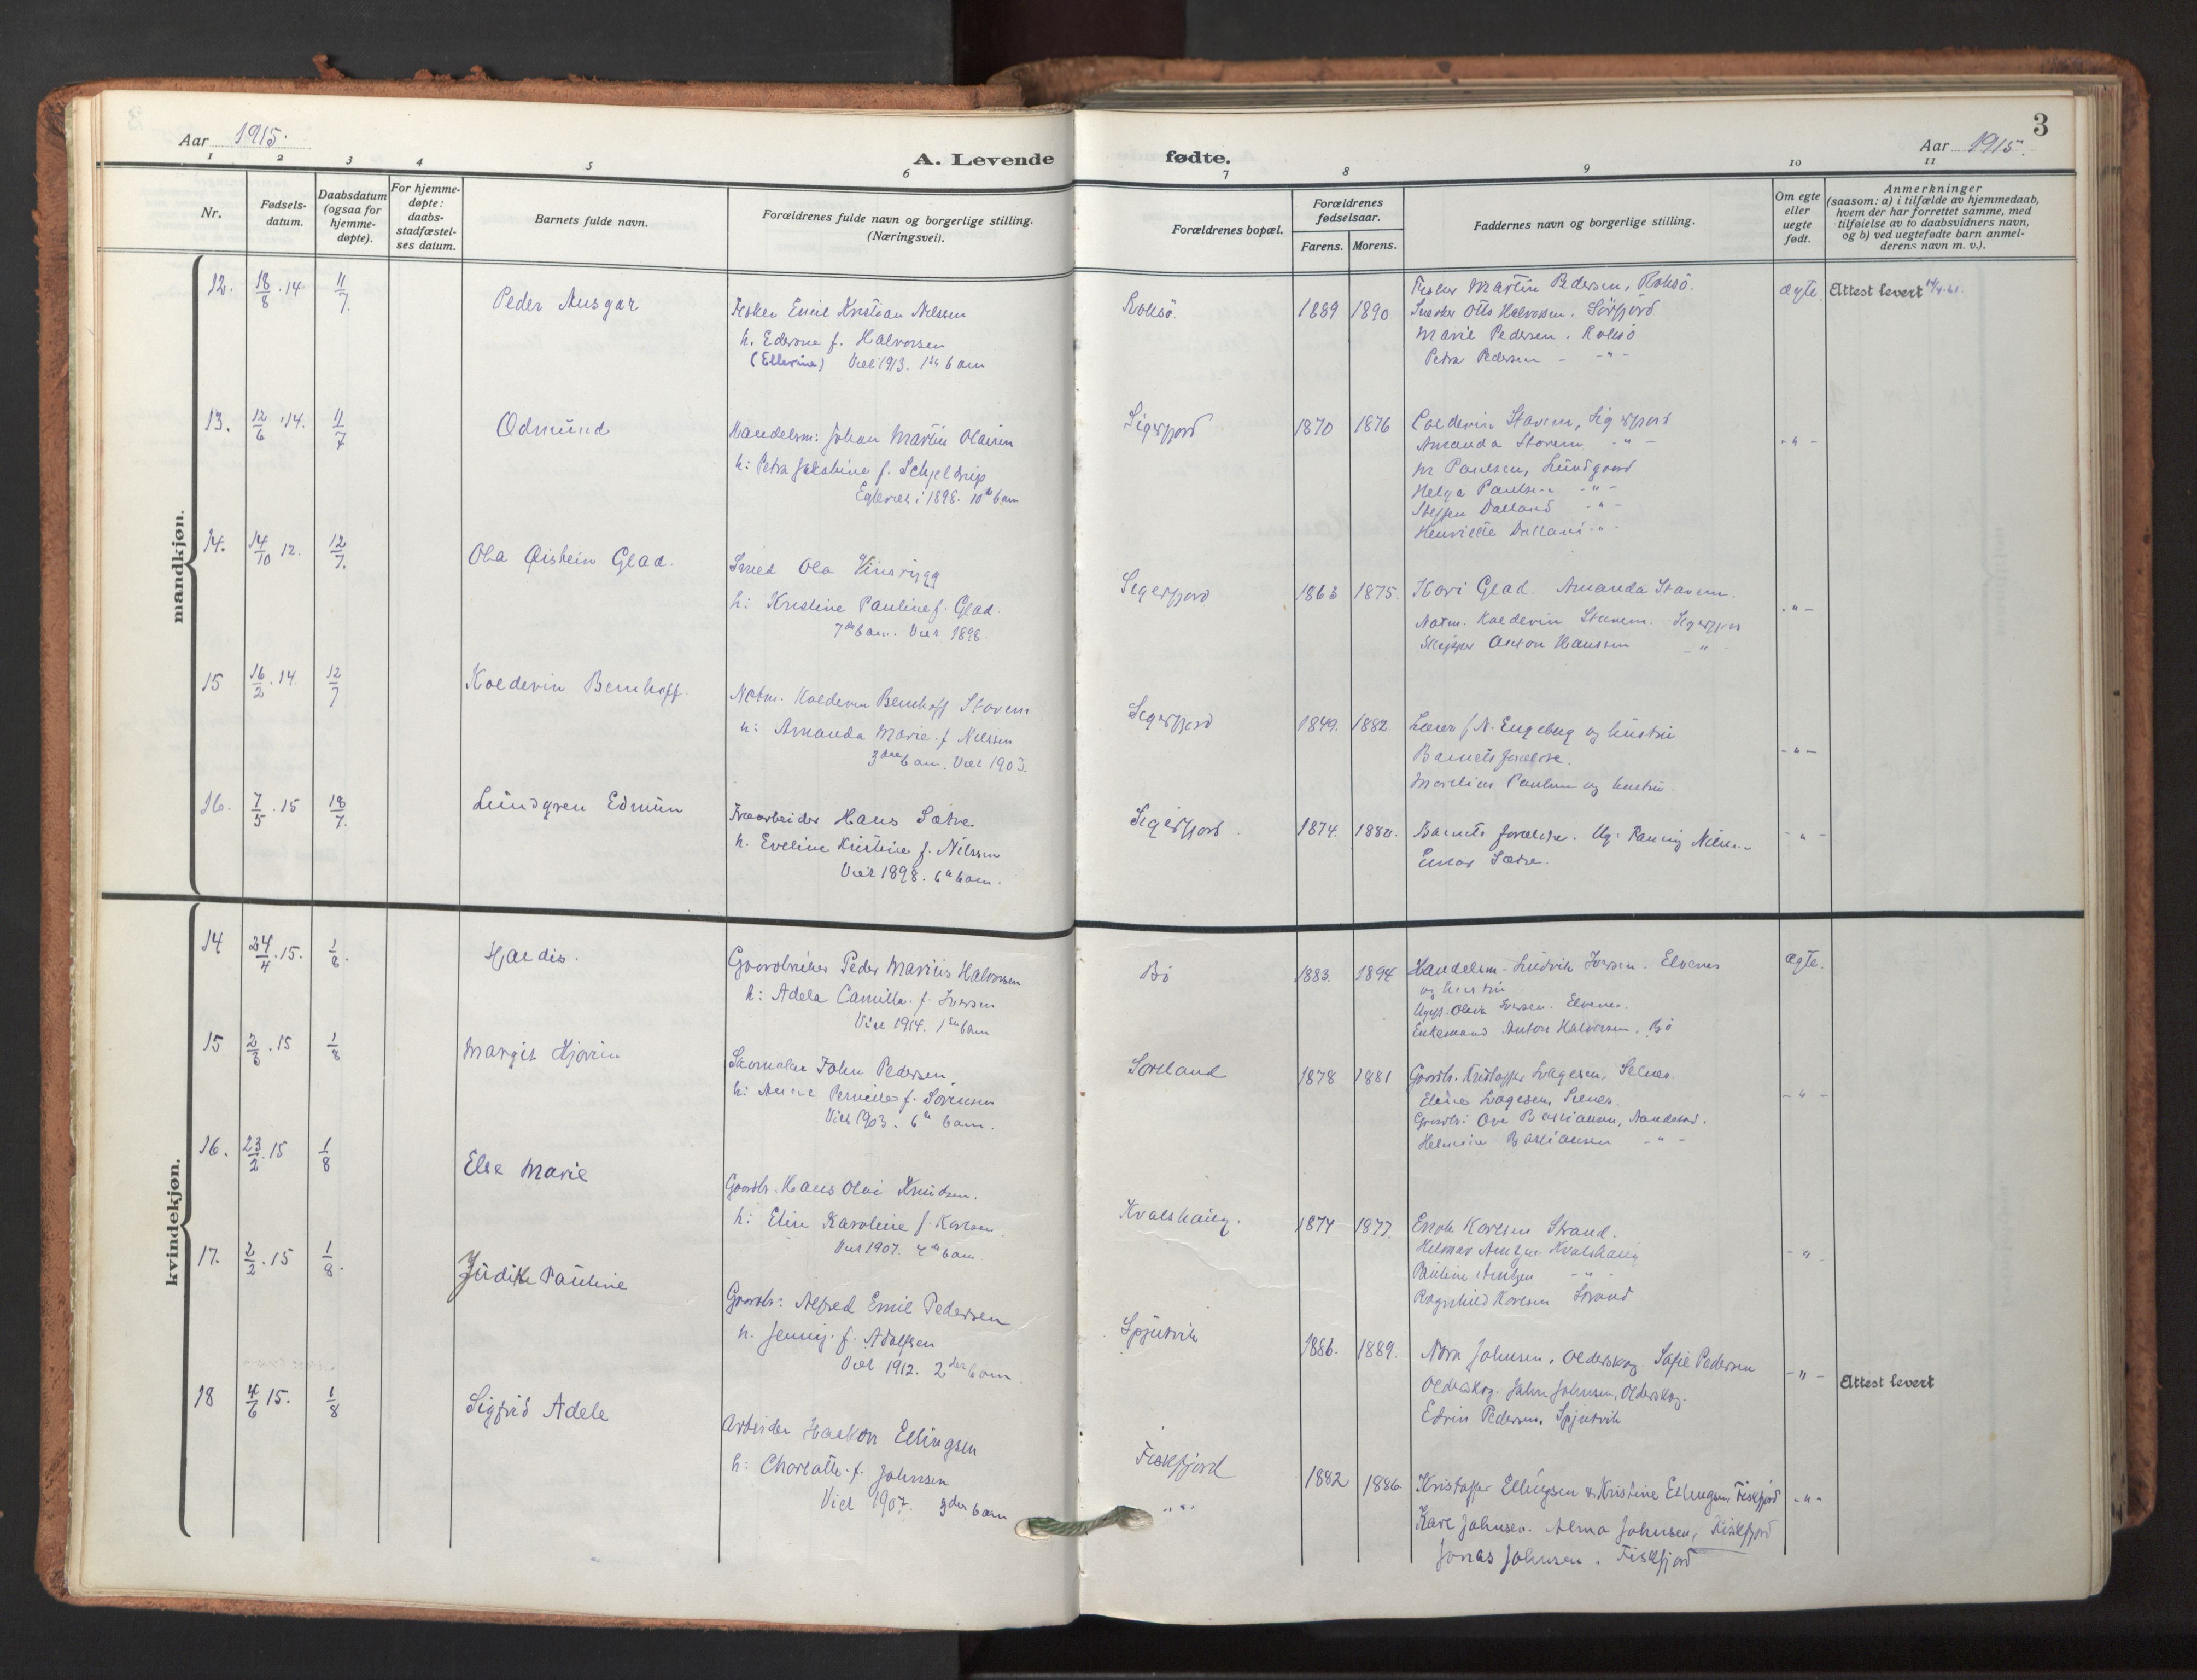 Aar 1915.
A. Levende fødte.
3
Aar 1915.
1 2 3 4 5 6 7 8 9 10 11
Nr.
Fødsels-
datum.
Daabsdatum
(ogsaa for
hjemme-
døpte).
For hjemme-
døpte:
daabs-
stadfæstel-
ses datum.
Barnets fulde navn.
Forældrenes fulde navn og borgerlige stilling.
(Næringsvei).
Forældrenes bopæl.
Forældrenes
fødselsaar.
Farens. Morens.
Faddernes navn og borgerlige stilling.
Om egte
eller
uegte
født.
Anmerkninger
(saasom: a) i tilfælde av hjemmedaab,
hvem der har forrettet samme, med
tilføielse av to daabsvidners navn,
og b) ved uegtefødte barn anmel-
derens navn m. v.).
mandkjøn.
12. 18/8 .14 11/7. Peder Ansgar
Fisker Emil Kristian Nilssen
h. Ederone f. Halvorsen
(Ellerine) Viet 1913. 1ste barn
Roksö. 1889 1890
Fisker Martin Pedersen, Roksö.
Otto Halvorsen. Sörfjord
Marie Pedersen. Roksö
Petra Pedersen - " -
ægte. Attest levert
13. 12/6 .14. 11/7 Odmund
Handelsm: Johan Martin Olaisen
h: Petra Jakobine f. Schjeldrup
Egteviet i 1898. 10de barn
Sigerfjord 1870 1876
Coldevin Stavem, Sigerfjord
Amanda Stavem - " -
M Paulsen, Lundgaard
Helga Paulsen - " -
Steffen Dalland - " -
Henriette Dalland - " -
- " -
14. 14/10 12. 12/7. Ola Øistein Glad.
Smed Ola Vinsrygg
h: Kristine Pauline f. Glad.
7de barn. Viet 1898.
Sigerfjord 1863 1875.
Kari Glad. Amanda Stavem.
Notm. Koldevin Stavem. Sigerfjord
Skipper Anton Hanssen - " -
- " -
15 16/2 .14. 12/7 Koldevin Bernhoff.
Notm. Koldevin Bernhoff Stavem
h: Amanda Marie f. Nilssen
3die barn. Viet 1903.
Sigerfjord 1849. 1882
Lærer J. N. Engeberg og hustru
Barnets forældre.
Mordius Paulsen og hustru.
- " -
16. 7/5 .15 18/7. Lundgren Edmun
Træarbeider Hans Sætre.
h. Eveline Kristine f. Nilssen
Viet 1898. 6te barn.
Sigerfjord. 1874. 1880.
Barnets forældre. Ug. Panny Nilsen.
Einar Sætre.
- " -
kvindekjøn.
14 24/4 .15. 1/8. Hjaldis.
Gaardbruker Peder Marius Halvorsen
h: Adela Camilla f. Iversen
Viet 1914. 1ste barn
Bö 1883. 1894
Handelsm. Ludvik Iversen. Elvenes
og hustru
Ungpi. Olivia Iversen. Elvenes.
Enkemand Anton Halvorsen, Bö
ægte.
15 2/3 .15 1/8 Margit Hjørun
John Pedersen.
h: Anne Pernille f. Sörensen
Viet 1903. 6te barn.
Sortland 1878 1881
Gaardbr. Kristoffer Lagesen, Selnes.
Eline Lagesen, Selnes.
Gaardbr: Ove Bastiansen,
Helmine Bastiansen - " -
- " -
16. 23/2 .15 1/8 Else Marie
Gaardbr. Hans Olai Knudsen.
h: Elise Karoline f. Karlsen.
Viet 1907. 4de barn
Kvalshaug. 1874 1877.
Enok Karlsen Strand.
Hilmar Arntzen Kvalshaug
Pauline Arntzen - " -
Ragnhild Karlsen Strand
- " -
17. 2/2 .15 1/8. Judike Pauline
Gaardbr: Alfred Emil Pedersen
h. Jenny f. Adolfsen
Viet 1912. 2det barn.
Spjutvik 1886. 1889.
Nora Johnsen, Olderskog Sofie Pedersen
Olderskog. John Johnsen, Olderskog.
Edvin Pedersen, Spjutvik
- " - Attest levert
18 4/6 15. 1/8 Sigfrid Adele
Arbeider Haakon Ellingsen
h: Charlotte f. Johnsen
Viet 1907. 3die barn
Fiskfjord
" " 1882 1886
Kristoffer Ellingsen & Kristine Ellingsen, Fiskfjord
Kare Johnsen. Alma Johnsen, Fiskfjord
Jonas Johnsen. Fiskfjord
- " -